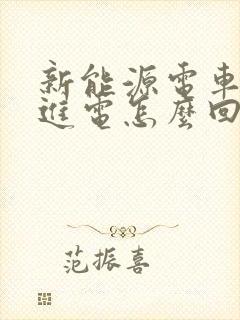 新能源電車
進電怎麼回
范振喜